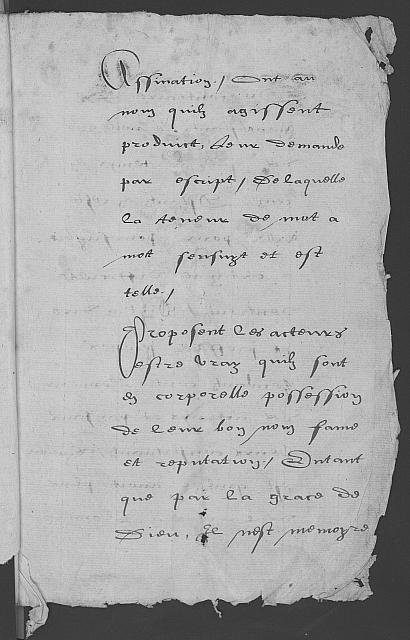 Assination / Ont au
nom quilz agissent
produict, leur demande
par escript / De laquelle
la teneur de mot a
mot sensuyt et est
telle /
Proposent les acteurs
estre vray quilz sont
en corporelle possession
de leur bon nom fame
et reputation / Entant
que par la grace de
Dieu, Il nest memoyre